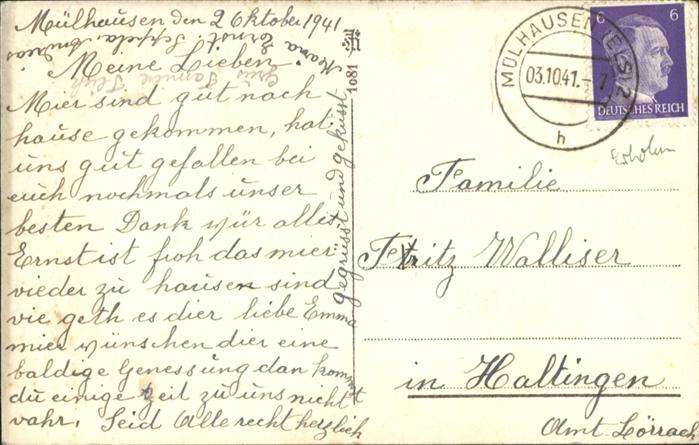 Mülhausen den 2 Oktober 1941
Mama Ernst Seppela Andreas
Meine Lieben
Mier sind gut nach
hause gekommen, hat
uns gut gefallen bei
euch nochmals unser
besten Dank vür alles,
Ernst ist froh das mier
vieder zu hausen sind
vie geth es dier liebe Emma
mier wünschen dier eine
baldige Genessung dan kommst
du einige Zeit zu uns nicht
vahr. Seid Alle recht herzlich
gegrüsst und geküsst
1081
MÜLHAUSEN (ELS) 2
03.10.41.-7
h
6 6
DEUTSCHES REICH
Erholen
Familie
Fritz Walliser
in Haltingen
Amt Lörrach